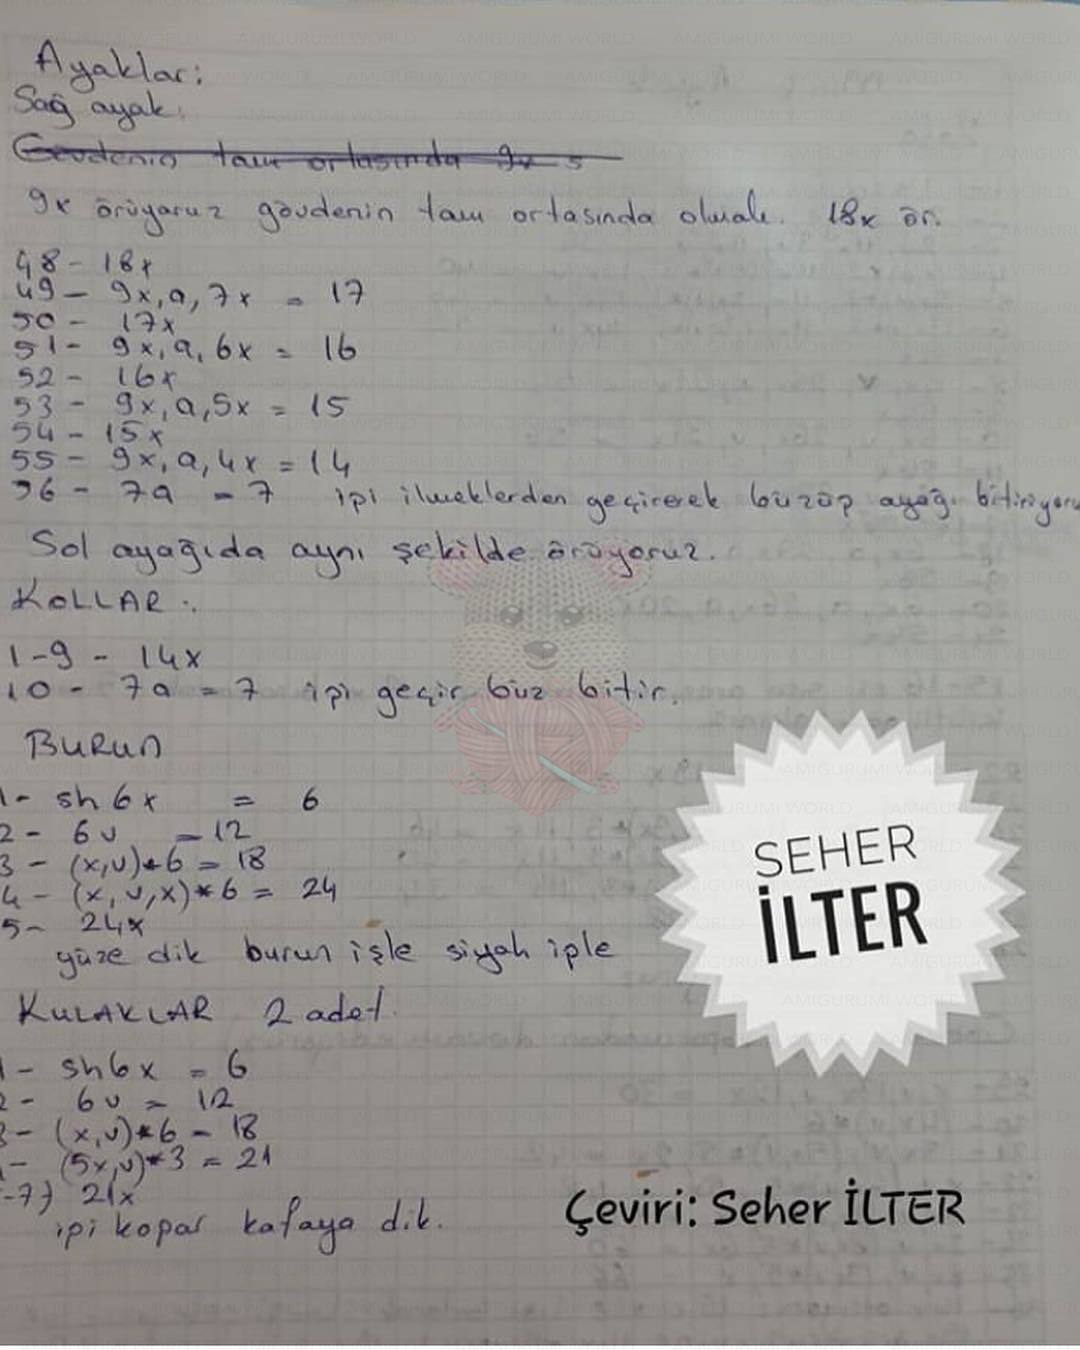 Ayaklar:
Sağ ayak:
Gövdenin tam ortasında 9x 5
9x örüyoruz gövdenin tam ortasında olmalı. 18x ör.
48 - 18x
49 - 9x, a, 7x = 17
50 - 17x
51 - 9x, a, 6x = 16
52 - 16x
53 - 9x, a, 5x = 15
54 - 15x
55 - 9x, a, 4x = 14
56 - 7a = 7 ipi ilmeklerden geçirerek büzüp ayağı bitiriyoru
Sol ayağıda aynı şekilde örüyoruz.
KOLLAR:
1-9 - 14x
10 - 7a = 7 ipi geçir büz bitir.
BURUN
1- sh 6x = 6
2- 6v = 12
3 - (x,v)*6 = 18
4 - (x,v,x)*6 = 24
5- 24x
yüze dik burun işle siyah iple
KULAKLAR 2 adet.
1- sh6x = 6
2- 6v = 12
3- (x,v)*6 - 18
- (5x,v)*3 = 21
-7) 21x
ipi kopar kafaya dik.
SEHER
İLTER
Çeviri: Seher İLTER
AMIGURUMI WORLD